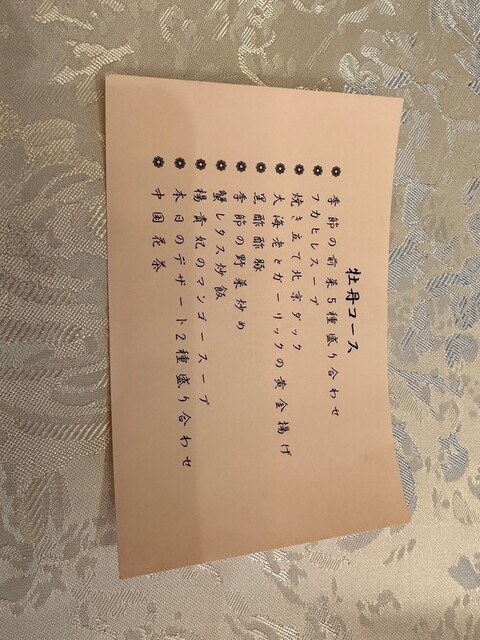 牡丹コース
季節の前菜5種盛り合わせ
フカヒレスープ
焼き立て北京ダック
大海老とガーリックの黄金揚げ
黒酢酢豚
季節の野菜炒め
蟹レタス炒飯
楊貴妃のマンゴースープ
本日のデザート2種盛り合わせ
中国花茶